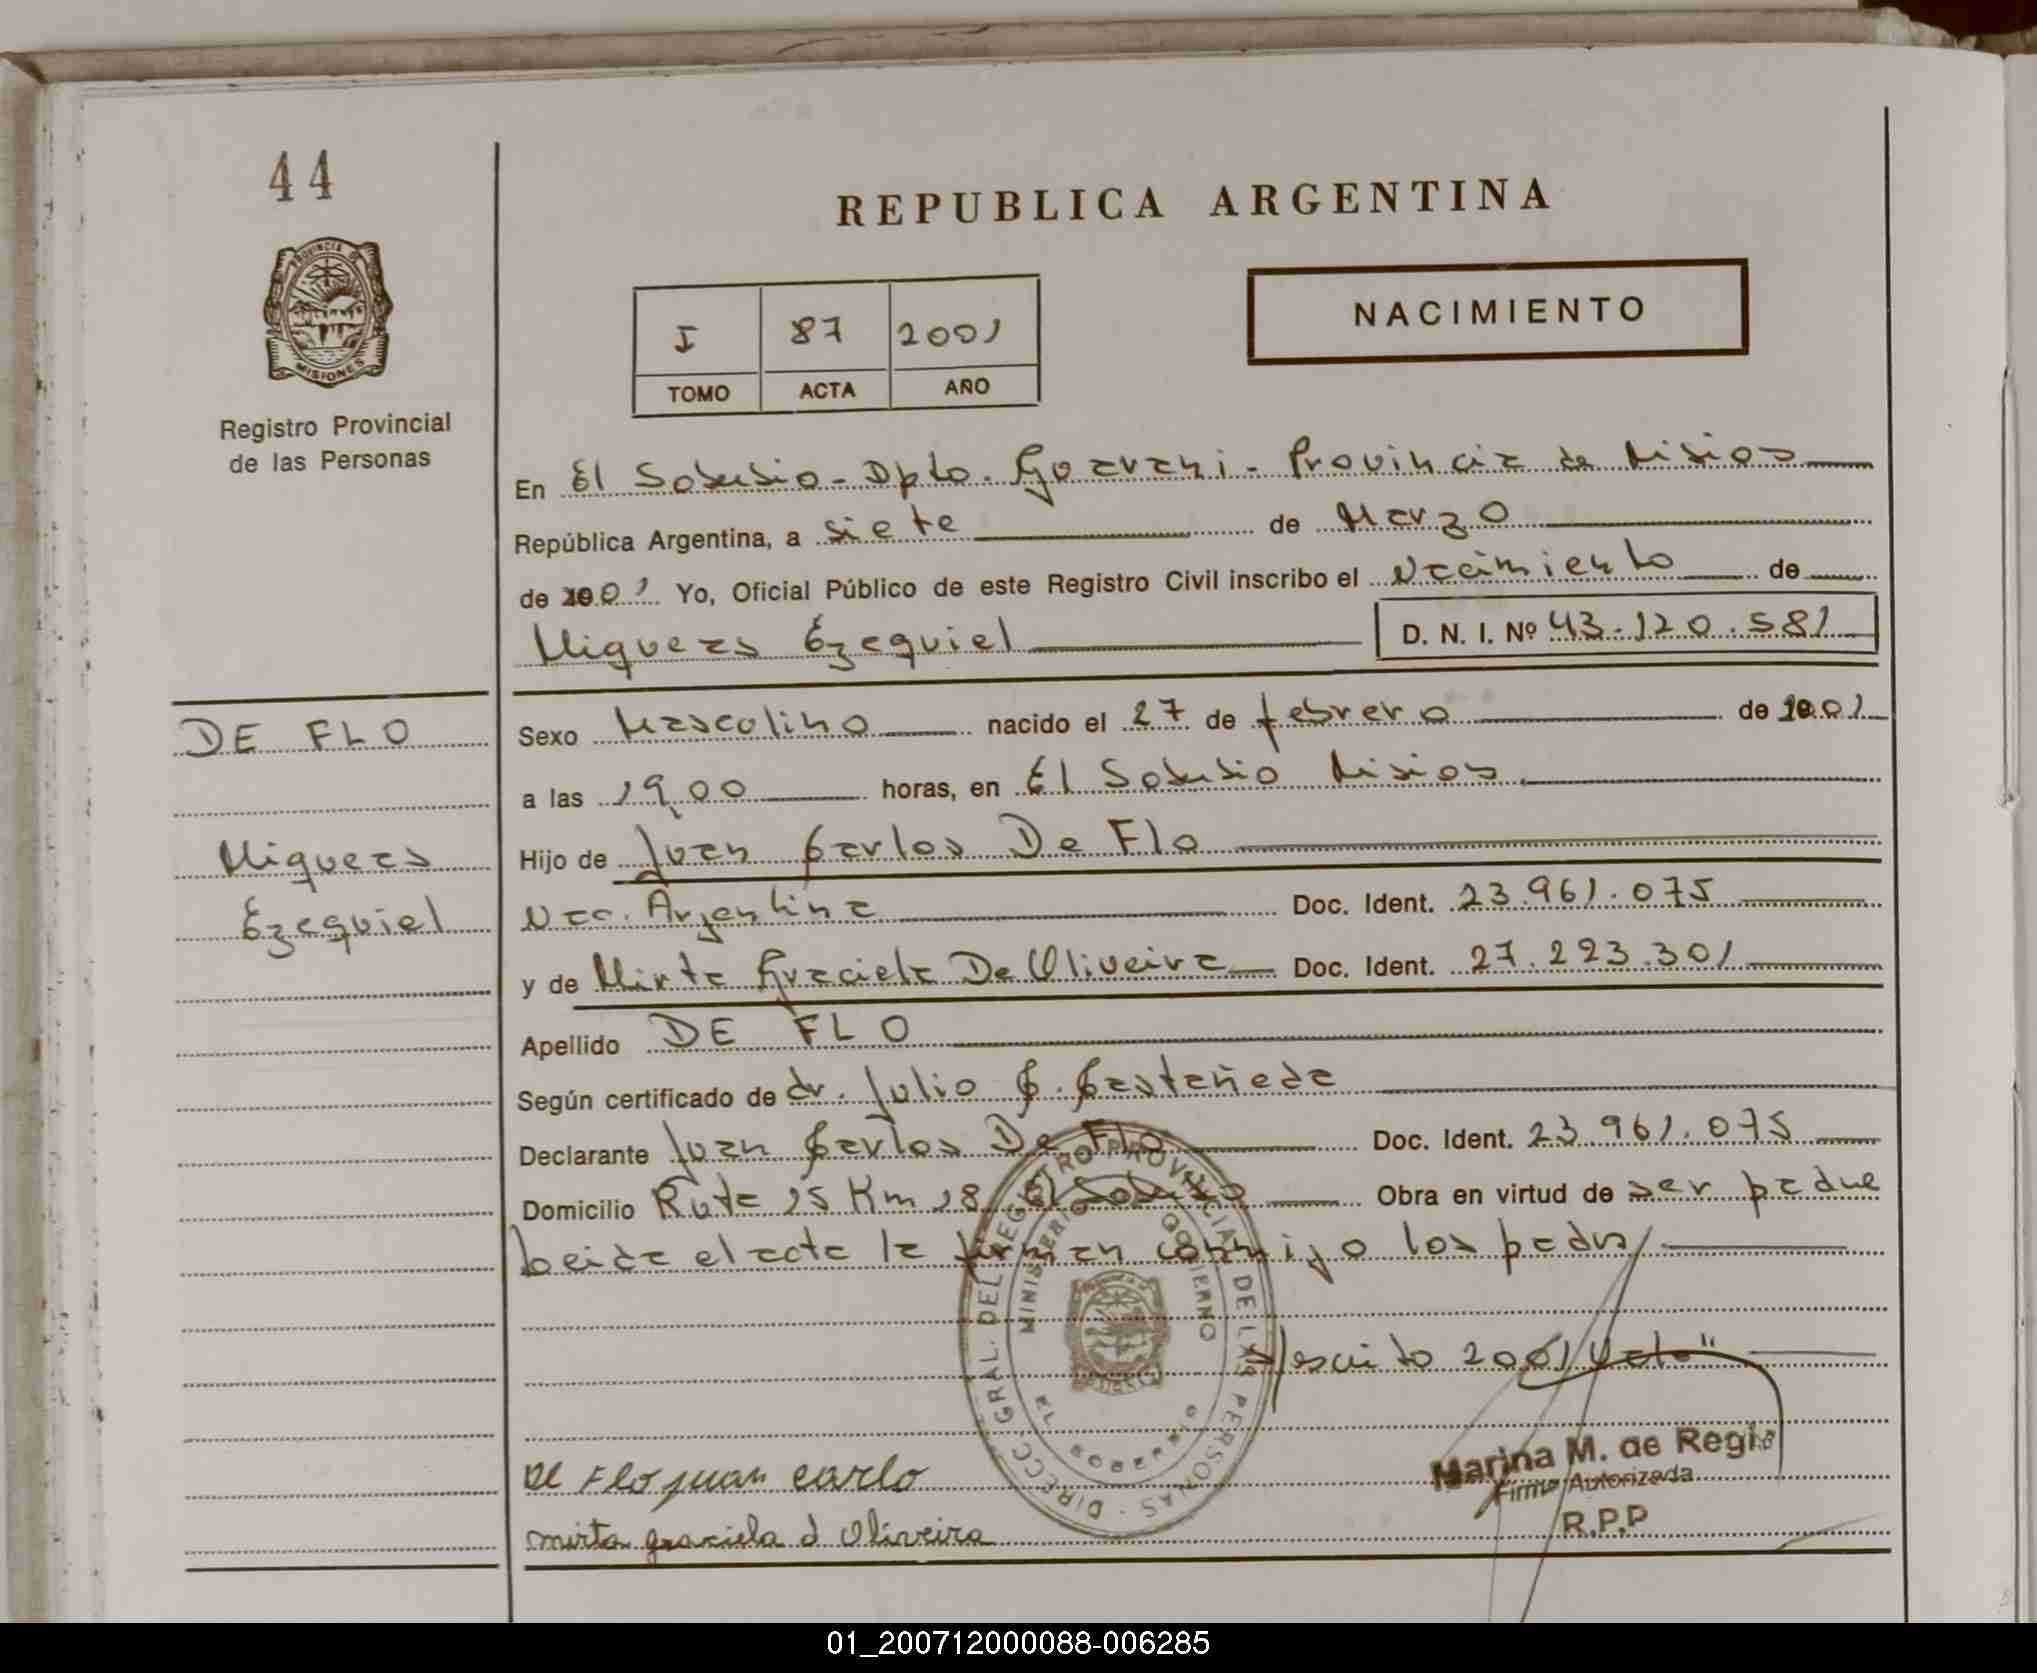 44
REPUBLICA ARGENTINA
PROVINCIA DE
MISIONES
Registro Provincial
de las Personas
NACIMIENTO
I 87 2001
TOMO ACTA AÑO
En El Soberbio - Dpto. Guarani - Provincia de Misiones
República Argentina, a siete de Marzo
de 2001 Yo, Oficial Público de este Registro Civil inscribo el Nacimiento de
Migueas Ezequiel D. N. I. Nº 43.120.581
DE FLO
Migueas
Ezequiel
Sexo Masculino nacido el 27 de febrero de 2001
a las 19,00 horas, en El Soberbio Misiones
Hijo de Juan Carlos De Flo
Nac. Argentina Doc. Ident. 23.961.075
y de Mirta Graciela De Oliveira Doc. Ident. 27.223.301
Apellido DE FLO
Según certificado de dr. Julio C. Castañeda
Declarante Juan Carlos De Flo Doc. Ident. 23.961.075
Domicilio Ruta 15 Km 18 El Soberbio Obra en virtud de ser padre
leida el acta la firman conmigo los padres
escrito 2001 Vale"
DIRECC. GRAL. DEL REGISTRO PROVINCIAL DE LAS PERSONAS
MINISTERIO GOBIERNO
EL SOBERBIO
De Flo juan carlo
mirta graciela d Oliveira
Marina M. de Regis
Firma Autorizada
R.P.P
01_200712000088-006285